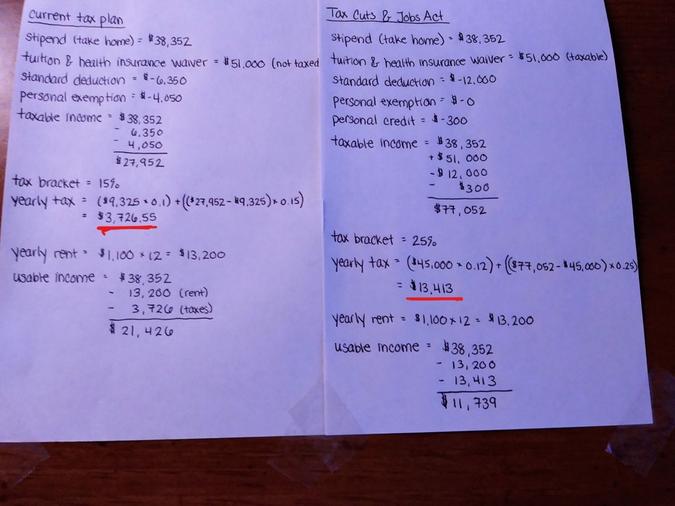 current tax plan
stipend (take home) = $38,352
tuition & health insurance waiver = $51,000 (not taxed
standard deduction = $-6,350
personal exemption = $-4,050
taxable income = $38,352
- 6,350
- 4,050
$27,952
tax bracket = 15%
yearly tax = ($9,325 × 0.1) + (($27,952 - $9,325) × 0.15)
= $3,726.55
yearly rent = $1,100 × 12 = $13,200
usable income = $38,352
- 13,200 (rent)
- 3,726 (taxes)
$21,426
Tax Cuts & Jobs Act
stipend (take home) = $38,352
tuition & health insurance waiver = $51,000 (taxable)
standard deduction = $-12,000
personal exemption = $-0
personal credit = $-300
taxable income = $38,352
+ $51,000
- $12,000
- $300
$77,052
tax bracket = 25%
yearly tax = ($45,000 × 0.12) + (($77,052 - $45,000) × 0.25)
= $13,413
yearly rent = $1,100 × 12 = $13,200
usable income = $38,352
- 13,200
- 13,413
$11,739